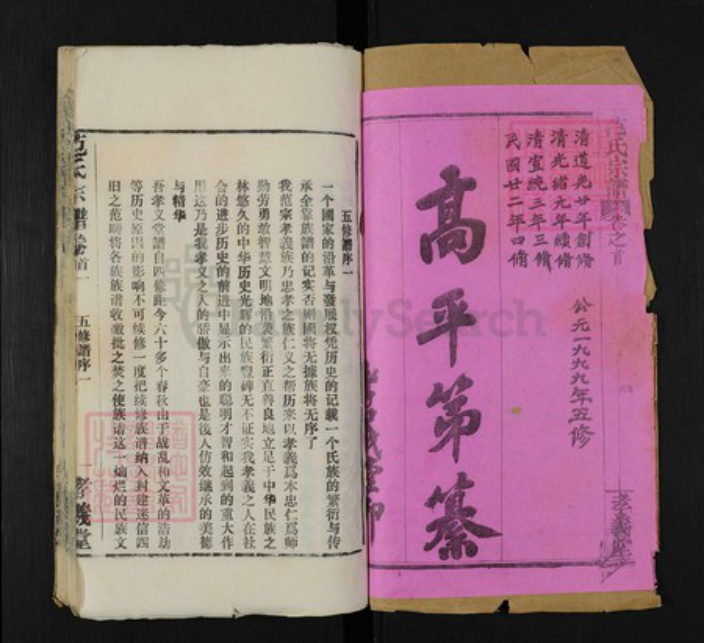 清道光廿年創修
清光緒元年續修
清宣統三年三修
民國廿二年四修
公元一九九九年五修
高平第纂
孝義堂
范氏宗譜卷之首
五修譜序一
一个國家的沿革与發展权凭历史的记載一个氏族的繁衍与传
承全靠族譜的记实否则國将无据族将无序了
我范宗孝義族乃忠孝之族仁义之帮历来以孝義爲本忠仁爲师
勤劳勇敢智慧文明地沿袭繁衍正直善良地立足于中华民族之
林悠久的中华历史光辉的民族豐碑无不证实我孝義之人在社
会的进步历史的前进中显示出来的聪明才智和起到的重大作
用这乃是我孝义之人的骄傲与自豪也是後人仿效继承的美德
与精华
吾孝义堂譜自四修距今六十多个春秋由于战乱和文革的浩劫
等历史原因的影响不可续修一度把续修族谱纳入封建迷信四
旧之范畴将各族族谱收激批之焚之使族谱这一灿烂的民族文
范氏宗譜卷首一
五修譜序一
孝義堂
FamilySearch